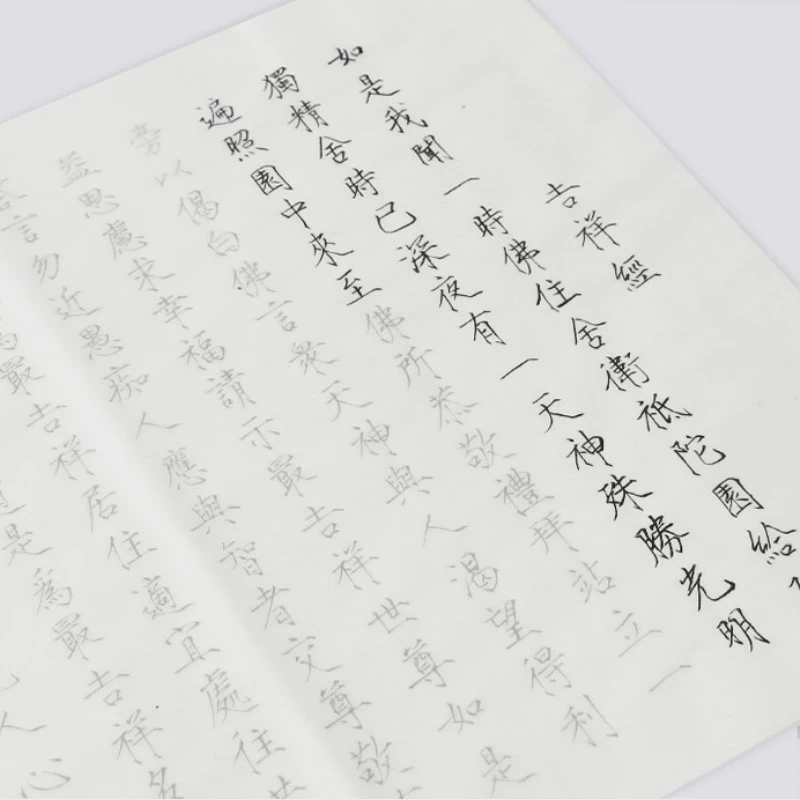 吉祥經
如是我聞一時佛住舍衛祇陀園給
獨精舍時已深夜有一天神殊勝光明
遍照園中來至佛所恭敬禮拜站立一
旁以偈白佛言衆天神與人渴望得利
益思慮求幸福請示最吉祥世尊如是
答言勿近愚痴人應與智者交尊敬
爲最吉祥居住適宜處往
是爲最吉祥多
人心